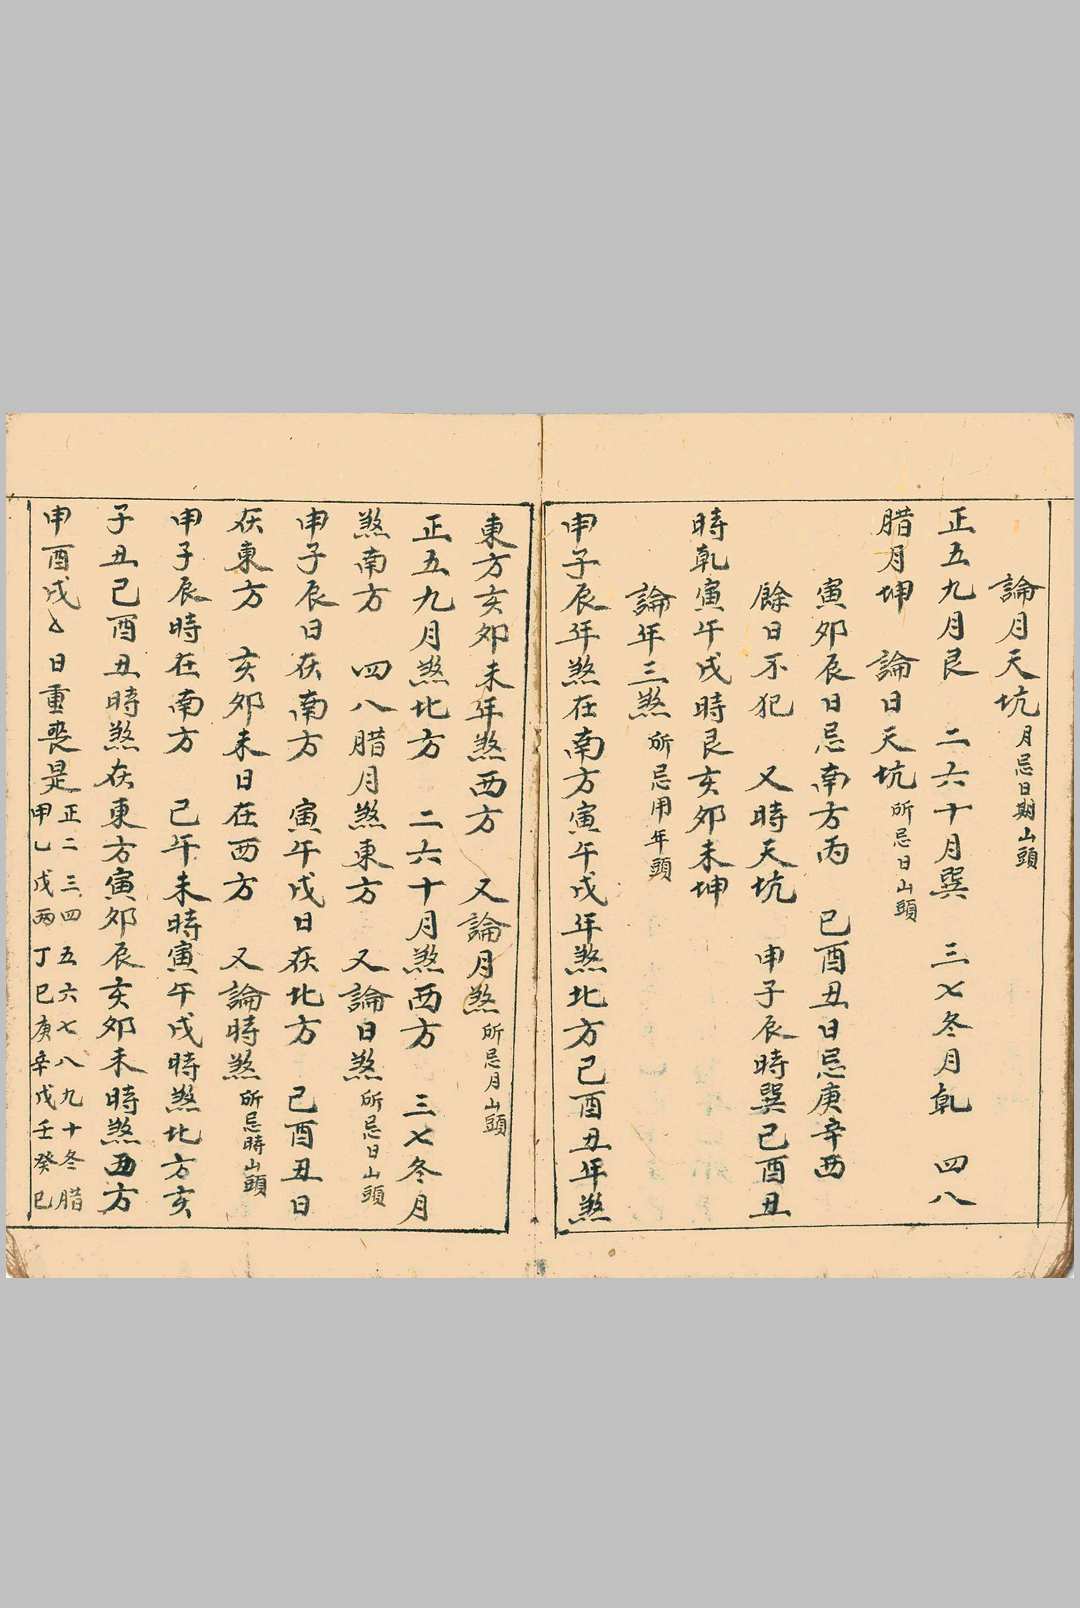 論月天坑月忌日期山頭
正五九月艮　二六十月巽　三七冬月乾　四八
腊月坤　論日天坑所忌日山頭
寅卯辰日忌南方丙　巳酉丑日忌庚辛西
餘日不犯　又時天坑　申子辰時巽巳酉丑
時乾寅午戌時艮亥卯未坤
論年三煞所忌用年頭
申子辰年煞在南方寅午戌年煞北方巳酉丑年煞
東方亥卯未年煞西方　又論月煞所忌月山頭
正五九月煞北方　二六十月煞西方　三七冬月
煞南方　四八腊月煞東方　又論日煞所忌日山頭
申子辰日在南方　寅午戌日在北方　巳酉丑日
在東方　亥卯未日在西方　又論時煞所忌時山頭
申子辰時在南方　巳午未時寅午戌時煞北方亥
子丑巳酉丑時煞在東方寅卯辰亥卯未時煞西方
申酉戌日重喪是正二三四五六七八九十冬腊
甲乙戊丙丁巳庚辛戊壬癸巳